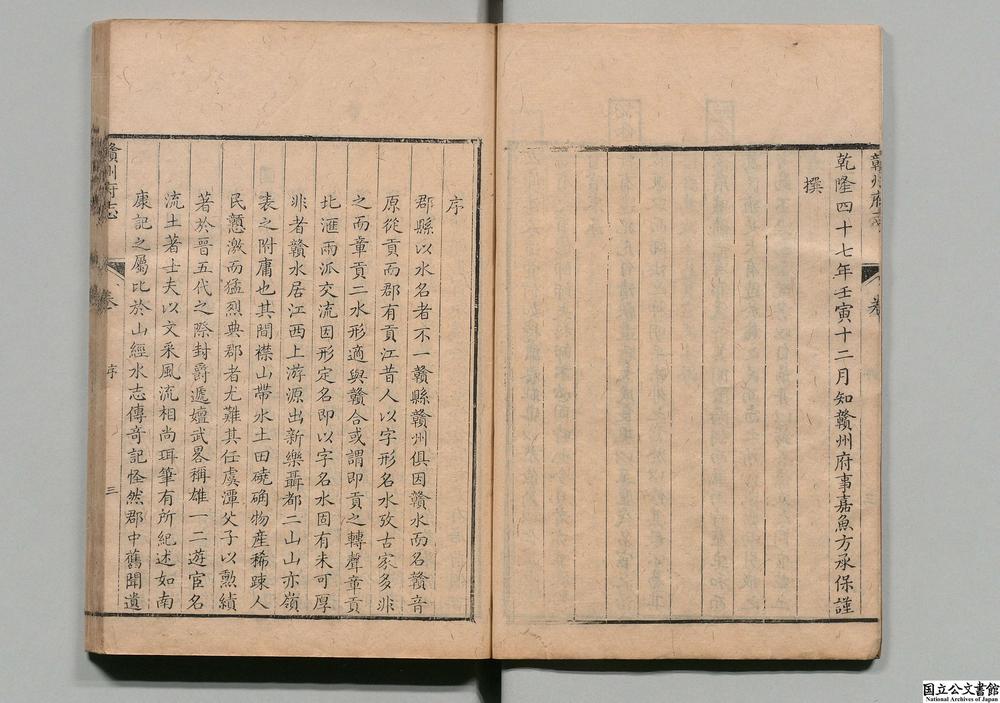 贛州府志
卷
乾隆四十七年壬寅十二月知贛州府事嘉魚方承保謹
撰
序
郡縣以水名者不一贛縣贛州俱因贛水而名贛音
原從貢而郡有貢江昔人以字形名水攷古家多非
之而章貢二水形適與贛合或謂即貢之轉聲章貢
北滙兩派交流因形定名即以字名水固有未可厚
非者贛水居江西上游源出新樂聶都二山山亦嶺
表之附庸也其間襟山帶水土田磽确物產稀踈人
民戇激而猛烈典郡者尤難其任虞潭父子以勲績
著於晉五代之際封爵遞嬗武畧稱雄一二遊宦名
流土著士夫以文采風流相尚珥筆有所紀述如南
康記之屬比於山經水志傳奇記怪然郡中舊聞遺
贛州府志
卷
序
三
国立公文書館
National Archives of Japan